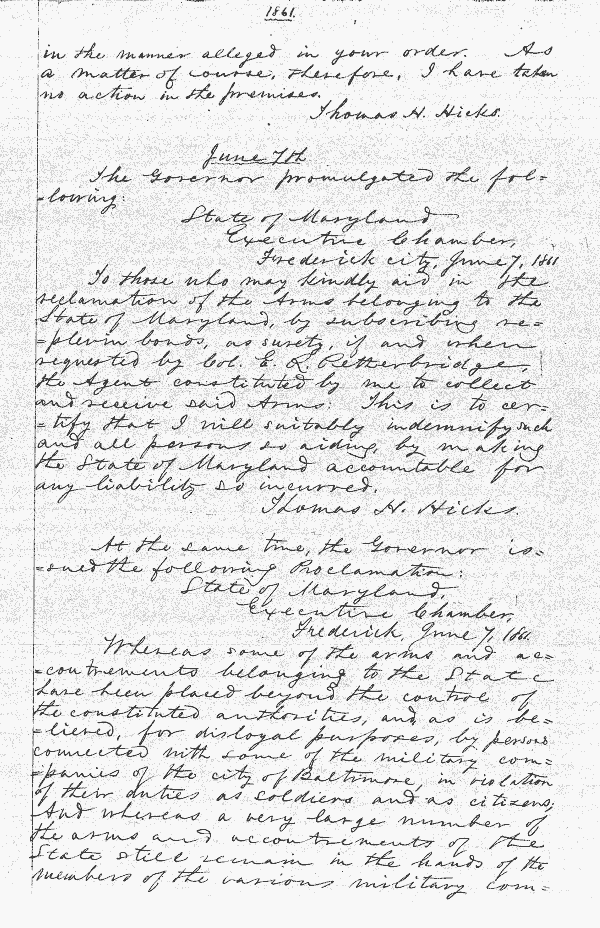 1861.
in the manner alleged in your order. As
a matter of course, therefore, I have taken
no action in the premises.
Thomas H. Hicks.
June 7th
The Governor promulgated the fol=
=lowing:
State of Maryland
Executive Chamber,
Frederick city, June 7, 1861
To those who may kindly aid in the
reclamation of the Arms belonging to the
State of Maryland, by subscribing re=
=plevin bonds, as surety, if and when
requested by Col. E. R. Petherbridge,
the Agent constituted by me to collect
and receive said Arms: This is to cer=
=tify that I will suitably indemnify such
and all persons so aiding, by making
the State of Maryland accountable for
any liability so incurred.
Thomas H. Hicks.
At the same time, the Governor is=
=sued the following Proclamation:
State of Maryland,
Executive Chamber,
Frederick, June 7, 1861.
Whereas some of the arms and ac=
=coutrements belonging to the State
have been placed beyond the control of
the constituted authorities, and, as is be=
=lieved, for disloyal purposes, by persons
connected with some of the military com=
=panies of the city of Baltimore, in violation
of their duties as soldiers and as citizens;
And whereas a very large number of
the arms and accoutrements of the
State still remain in the hands of the
members of the various military com=